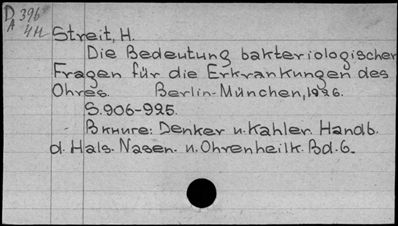 D 396
A 4H
Streit, H.
Die Bedeutung bakteriologischer
Fragen für die Erkrankungen des
Ohres. Berlin-München, 1926.
S.906-925.
В книге: Denker u. Kahler. Handb.
d. Hals- Nasen- u. Ohrenheilk. Bd.6.